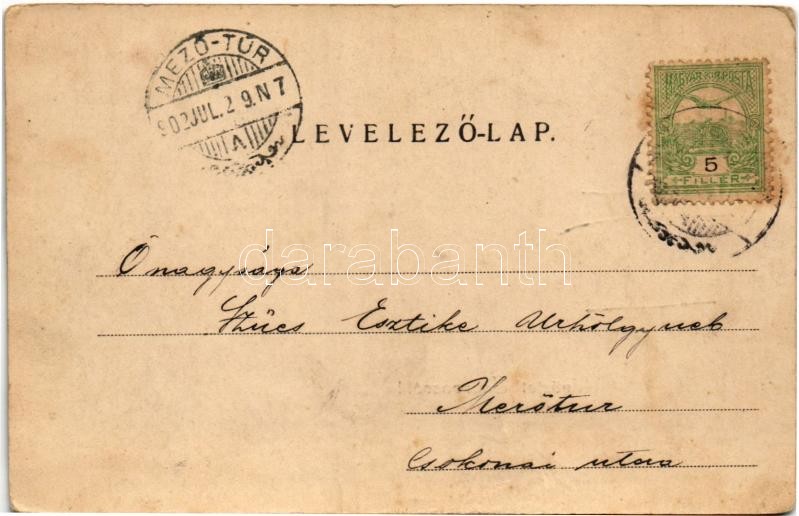 MEZŐ-TÚR
902 JUL. 2 9. N 7
A
LEVELEZŐ-LAP.
MAGYAR KIR. POSTA
5
FILLÉR
darabanth
Őnagysága
Szűcs Esztike Urhölgynek
Mezőtur
Csokonai utca